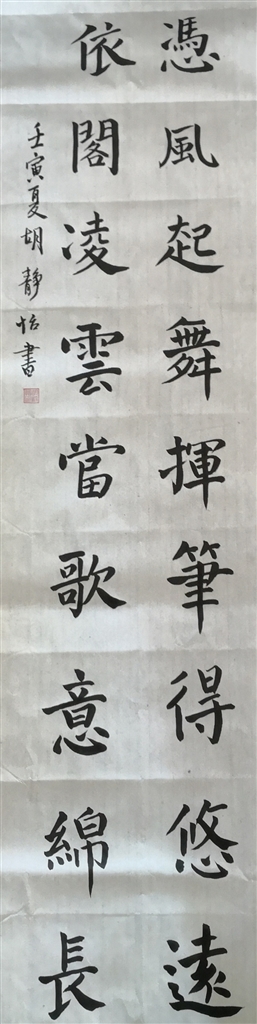 憑風起舞揮筆得悠遠
依閣凌雲當歌意綿長
壬寅夏胡靜怡書